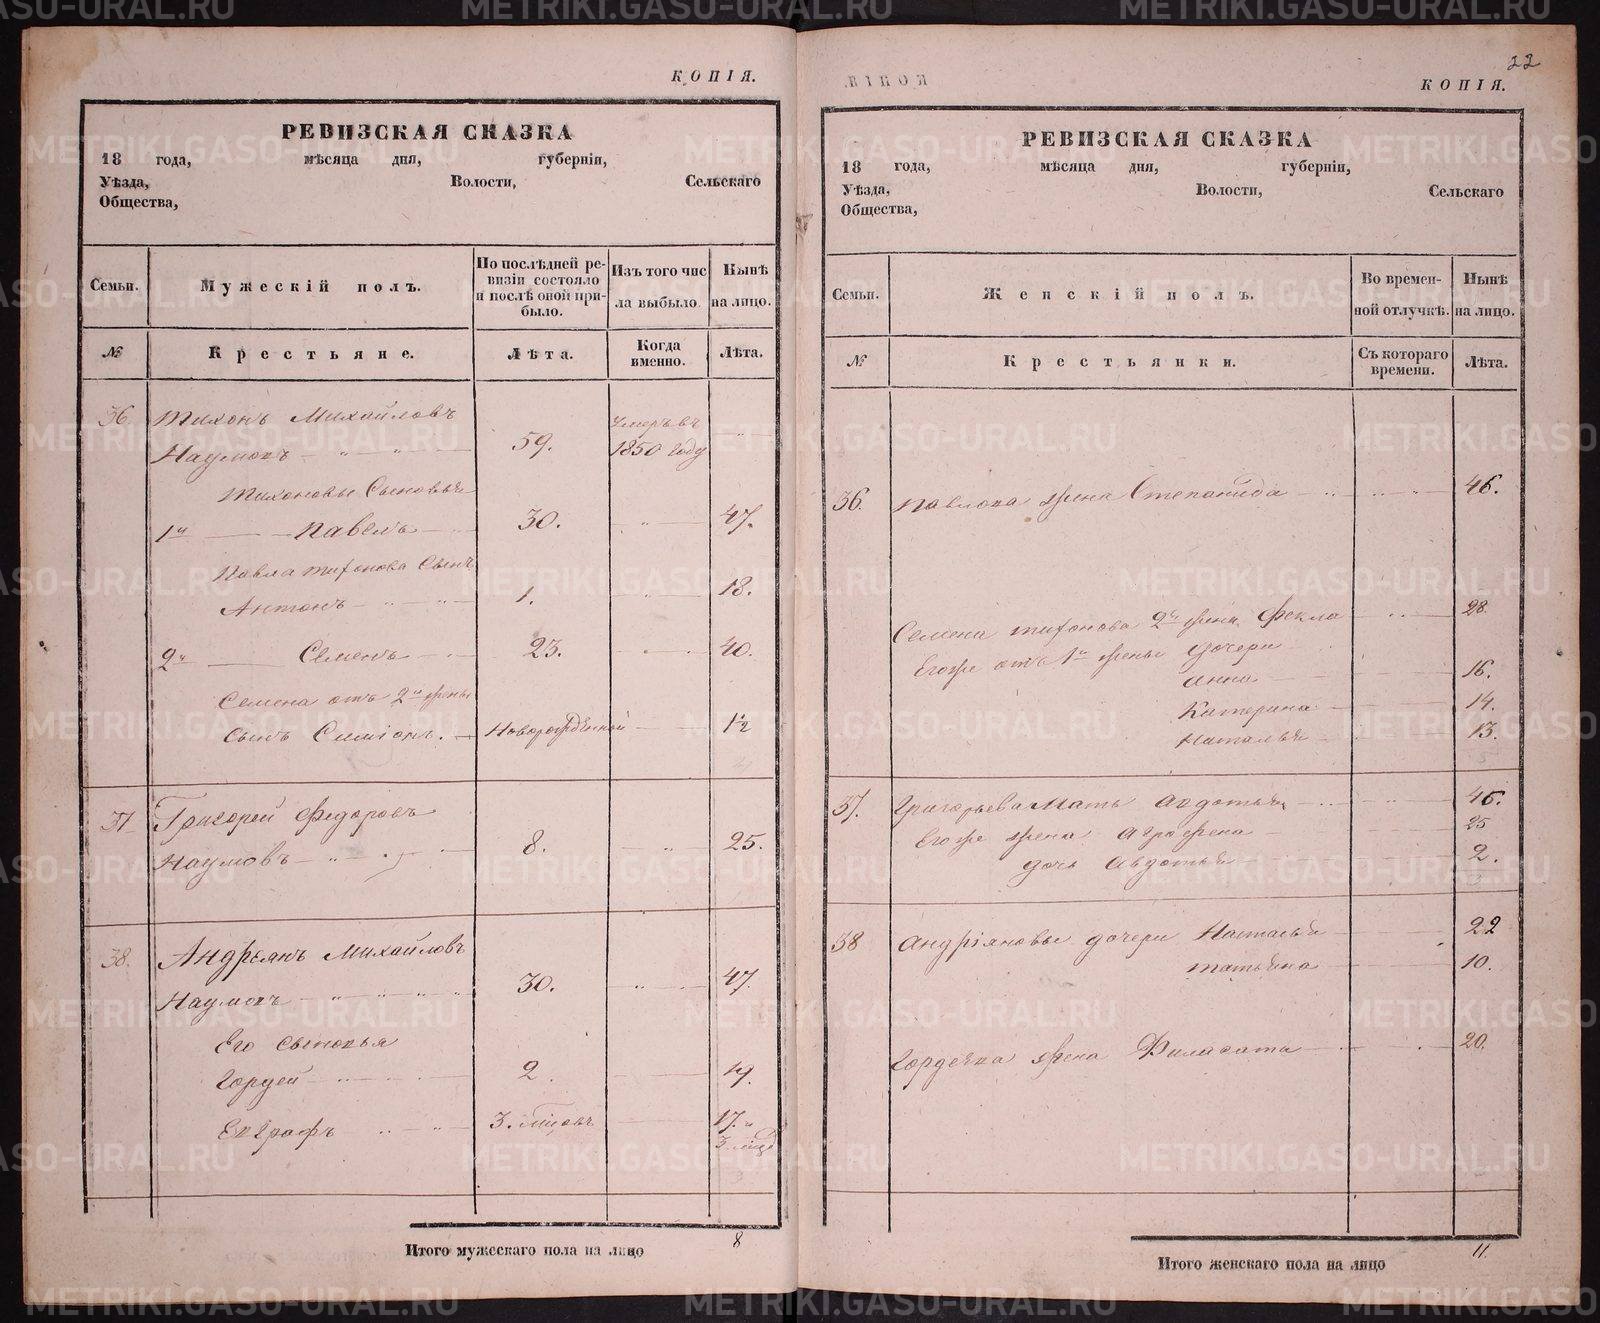 КОПІЯ.
РЕВИЗСКАЯ СКАЗКА
18 года, мѣсяца дня, губерніи,
Уѣзда, Волости, Сельскаго
Общества,
Семьи. Мужескій полъ. По послѣдней ревизіи состояло и послѣ оной прибыло. Изъ того числа выбыло. Нынѣ на лицо.
№ Крестьяне. Лѣта. Когда именно. Лѣта.
36. Тихонъ Михайловъ умеръ въ
Наумовъ 59. 1850 году
Тихоновы Сыновья
1й Павелъ 30. 47.
Павла тихонова Сынъ
Антонъ 1. 18.
2й Семенъ 23. 40.
Семена отъ 2й жены
сынъ Симіонъ. Новорожденной 1/2
4
37 Григорей Федоровъ
Наумовъ 8. 25.
38. Андреянъ Михайловъ
Наумовъ 30. 47.
Его сыновья
Гордей 2. 19.
Евграфъ 3. мцовъ 17. и
3 мца
3
Итого мужескаго пола на лицо 8
22
КОПІЯ.
РЕВИЗСКАЯ СКАЗКА
18 года, мѣсяца дня, губерніи,
Уѣзда, Волости, Сельскаго
Общества,
Семьи. Женскій полъ. Во временной отлучкѣ. Нынѣ на лицо.
№ Крестьянки. Съ котораго времени. Лѣта.
36. Павлова жена Степанида 46.
Семена тихонова 2я жена Фекла 28
Егоже отъ 1й жены дочери
Анна 16.
Катерина 14.
Наталья 13.
5
37. Григорьева Мать Авдотья 46.
Егоже жена Аграфена 25
дочь Авдотья 2.
3
38 Андріяновы дочери Наталья 22
татьяна 10.
Гордеява жена Филасата 20.
Итого женскаго пола на лицо 11.
METRIKI.GASO-URAL.RU